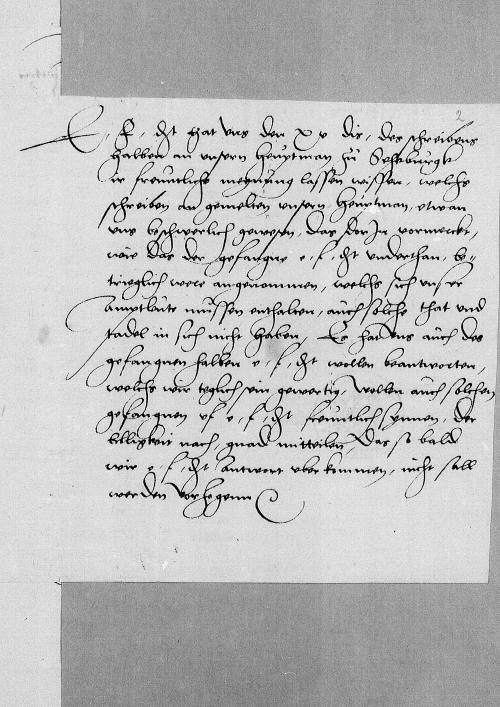 2
E. f. dt hat vns den x v dis, des schreibens
halben an vnsern heuptman zu Sehburgk
ir freuntlichs meynung lassen wissen, welchs
schreiben an gemelten vnsern heuptman, etwan
vns beschwerlich gewesen, das dor In vormerckt,
wie das der gefangne e. f. dt vnderthan, be-
trieglich were angenommen, welchs sich vnsere
amptleute mussen enthalten, auch solche that vnd
tadel in sich nicht haben, Es hat vns auch des
gefangnen halben e. f. dt wollen beantworten,
welchs wir teglich sein gewertig, wollen auch solchen
gefangnen vf e. f. dt freuntlich synnen, der
billigkeit nach, gnad mitteilen, Das so bald
wir e. f. dt antwort vberkummen, nicht sall
werden vorhegenn